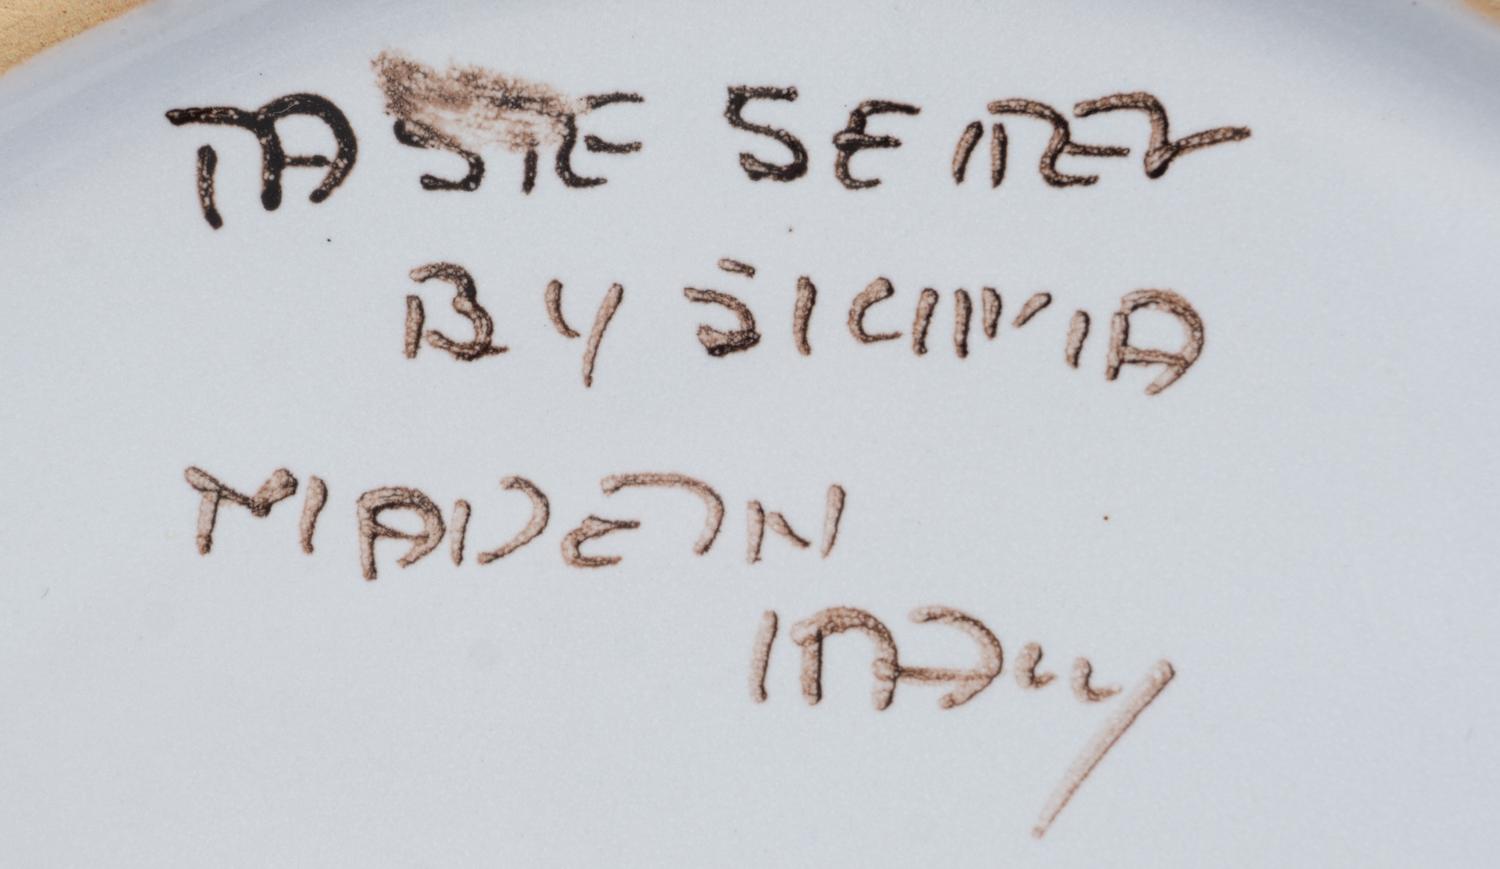 TASTE SETTER
BY SIGMA
MADE IN
ITALY